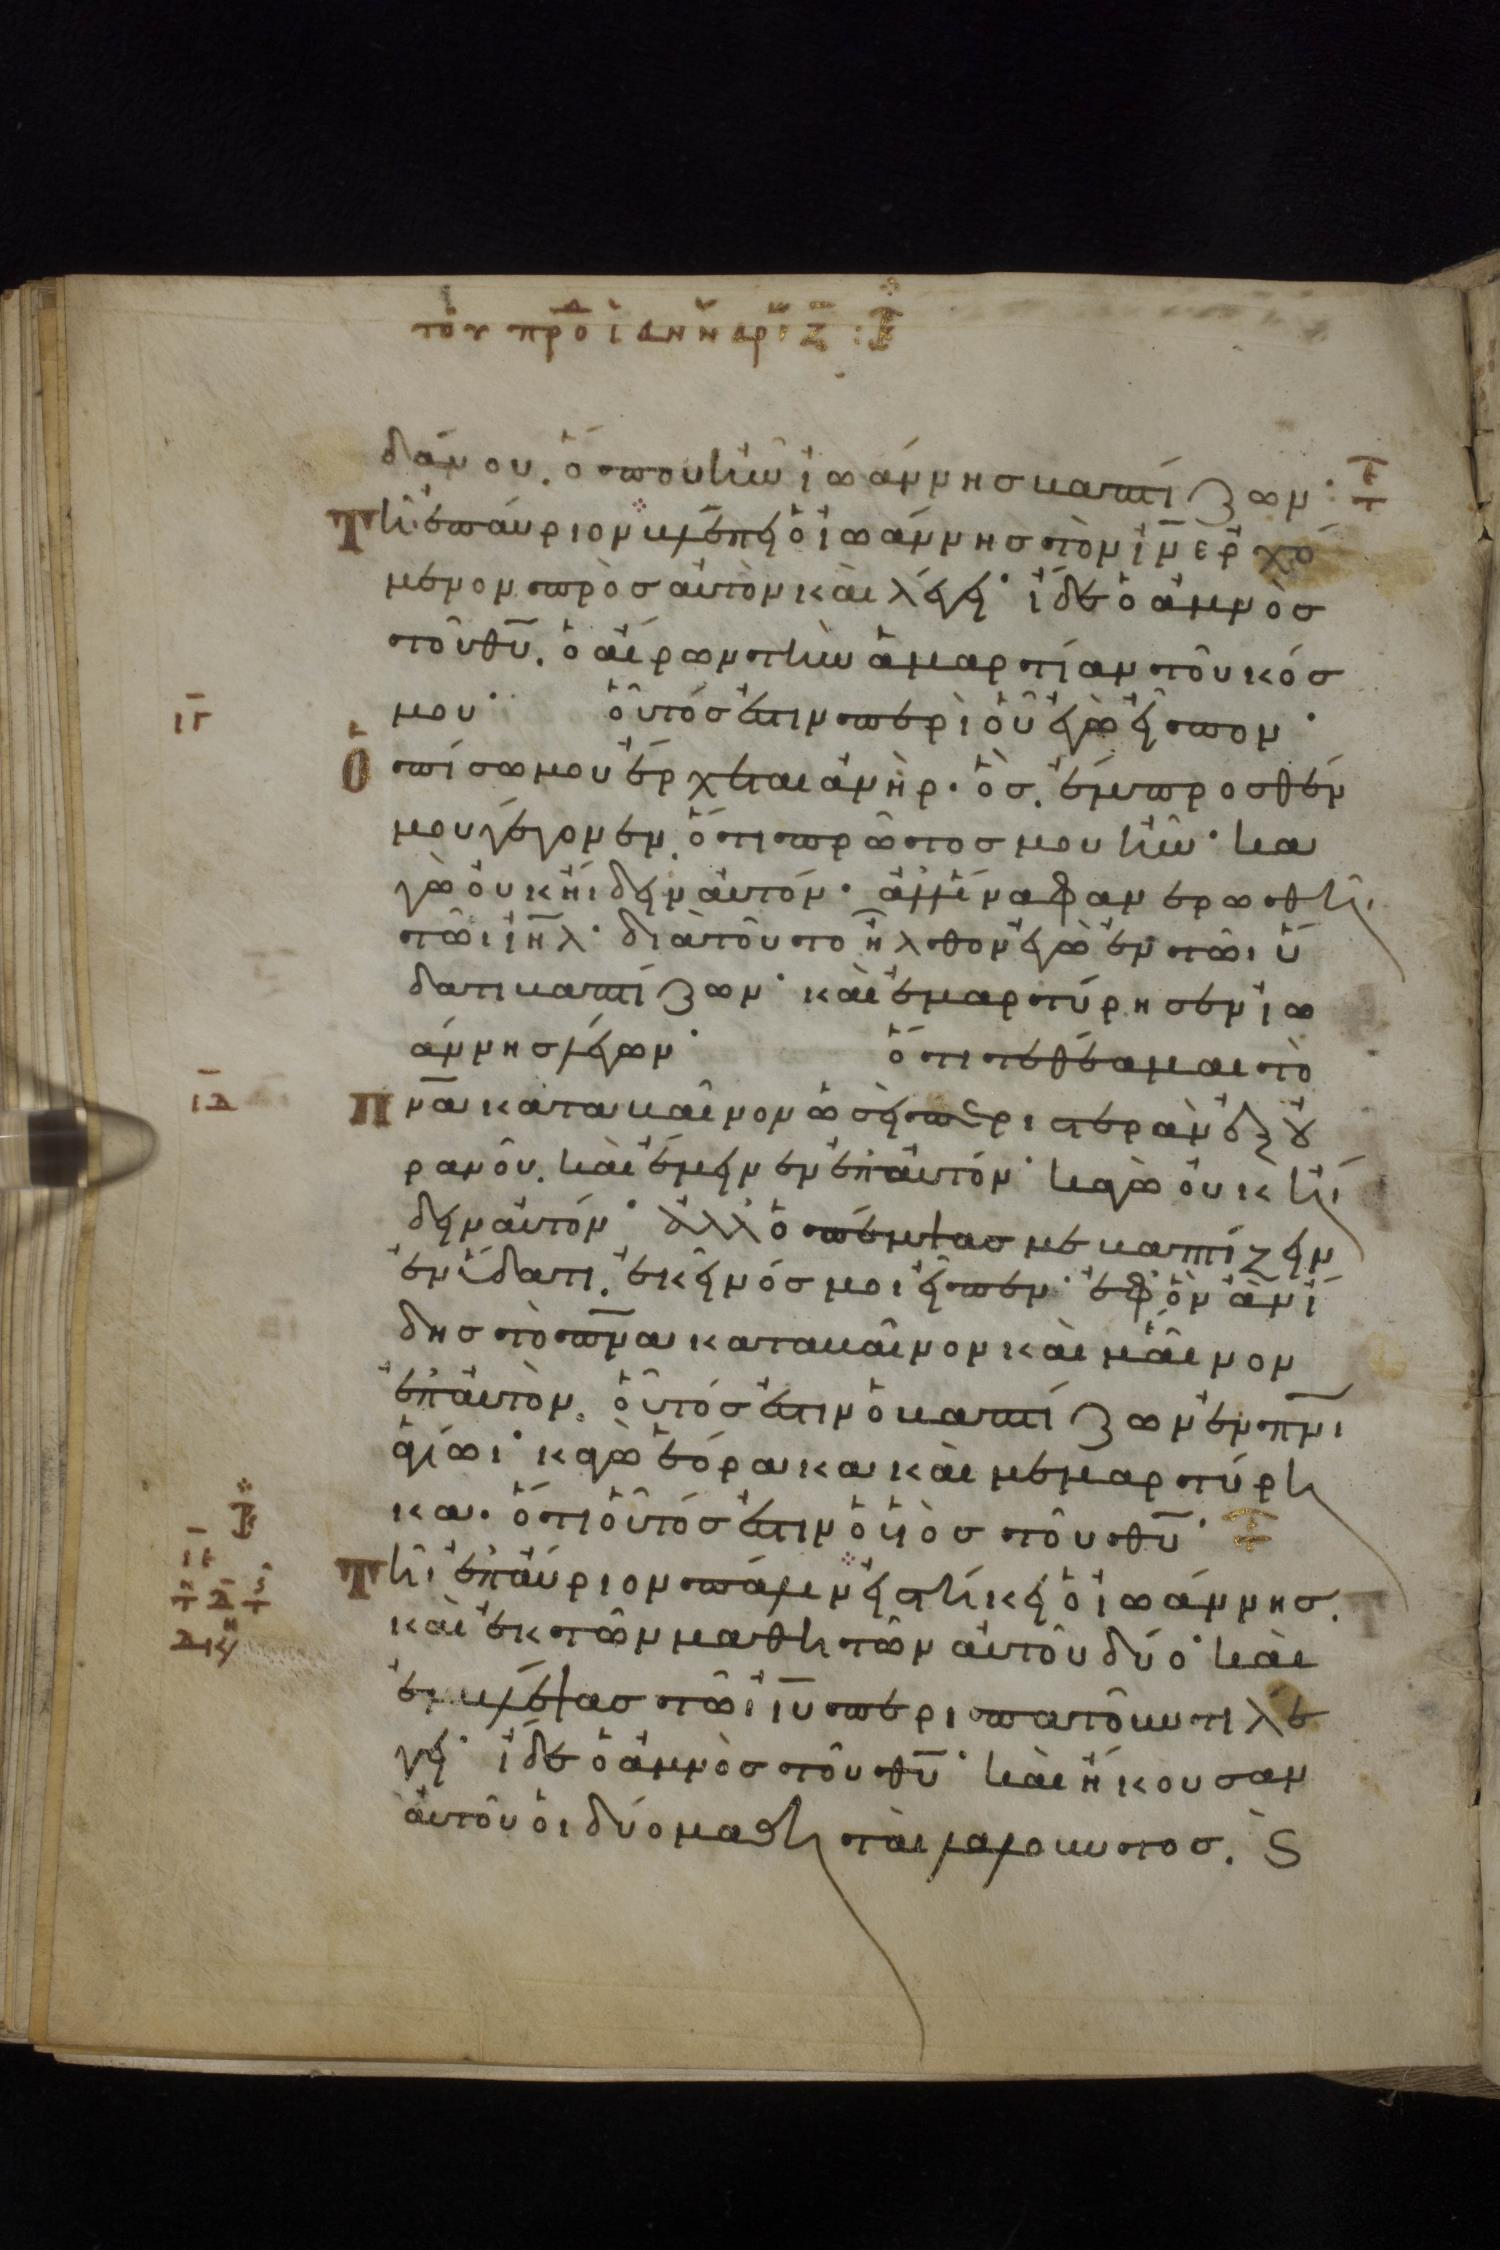 δάνου. ὅπου ἦν ἰωάννησ βαπτίζων·
Τῆ ἐπάυριον βλέπει ὁ ἰωάννησ τὸν ἰν ἐρχό
μενον πρὸσ αὐτὸν καὶ λέγει· ἴδε ὁ ἀμνὸσ
τοῦ θῡ. ὁ αἴρων τὴν ἁμαρτίαν τοῦ κόσ
ιγ μου· οὗτόσ ἐστιν περὶ οὗ ἐγὼ εἶπον·
Ὀ πίσω μου ἔρχεται ἀνὴρ. ὃσ. ἔμπροσθέν
μου γέγονεν. ὅτι πρῶτοσ μου ἦν· κα
γὼ οὐκ ἤιδειν αὐτόν. ἀλλ' ἵνα φανερωθῆ
τῶι ἰηλ· διὰ τοῦτο ἦλθον ἐγὼ ἐν τῶι ὕ
δατι βαπτίζων· καὶ ἐμαρτύρησεν ἰω
άννησ λέγων· ὅτι τεθέαμαι τὸ
ιδ Πνα καταβαῖνον ὡσεὶ περιστερὰν ἐξ οὐ
ρανοῦ. καὶ ἔμεινεν ἐπ' αὐτόν· κἀγὼ οὐκ ἤι
δειν αὐτόν· ἀλλ' ὁ πέμψασ με βαπτίζειν
ἐν ὕδατι. ἐκεῖνόσ μοι εἶπεν· ἐφ' ὃν ἂν ἴ
δησ τὸ πνα καταβαῖνον καὶ μένον
ἐπ' αὐτὸν. οὗτόσ ἐστιν ὁ βαπτίζων ἐν πνι
ἁγίωι· κἀγὼ ἑόρακα καὶ μεμαρτύρη
κα. ὅτι οὗτόσ ἐστιν ὁ υἱὸσ τοῦ θῡ·
ιε Τῆι ἐπάυριον πάλιν εἱστήκει ὁ ἰωάννησ.
καὶ ἐκ τῶν μαθητῶν αὐτοῦ δύο· καὶ
ἐμβλέψασ τῶι ἰυ περιπατοῦντι λέ
γει· ἴδε ὁ ἀμνὸσ τοῦ θῡ· καὶ ἤκουσαν
αὐτοῦ οἱ δύο μαθηταὶ λαλοῦντοσ. Ϛ